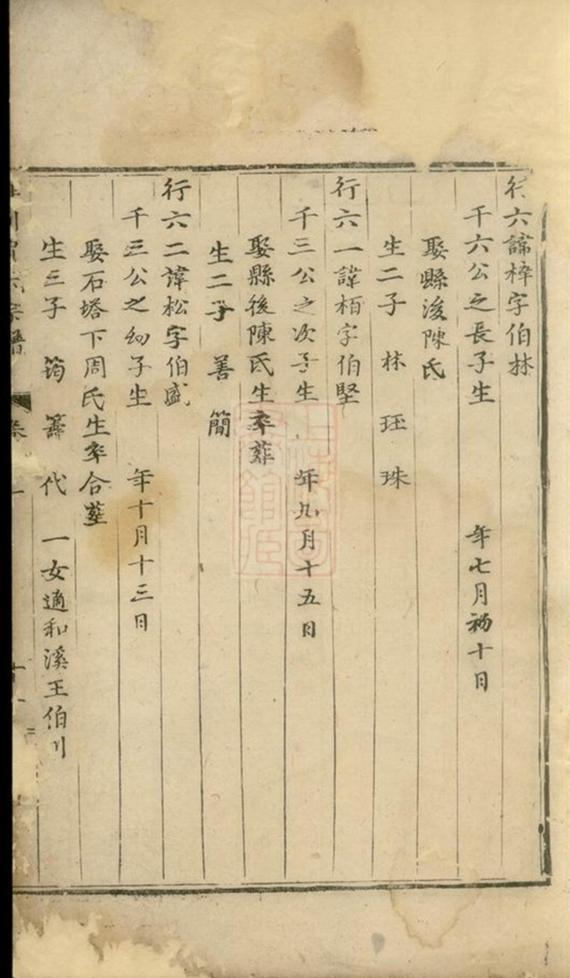 行六諱梓字伯林
千六公之長子生 年七月初十日
娶縣後陳氏
生二子 林 珏 珠
行六一諱栢字伯堅
千三公之次子生 年九月十五日
娶縣後陳氏生卒葬
生二子 善 簡
行六二諱松字伯盛
千三公之幼子生 年十月十三日
娶石塔下周氏生卒合塟
生三子 筠 籌 代 一女適和溪王伯川